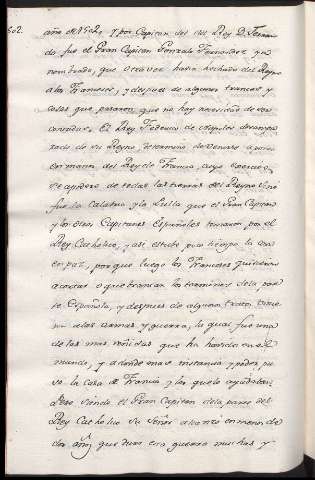 502.
año de 1502, y por Capitan del dho Rey D. Fernan-
do fué el Gran Capitan Gonzalo Fernandez ya
nombrado, que otra vez havia echado del Reyno
a los Franceses, y despues de algunos trances y
cosas que pasaron que no hay necesidad de
contarlas. El Rey Federico de Napoles
de su Reyno, determinó de ponerse a
en manos del Rey de Francia, cuyo exercito
se apoderó de todas las tierras del Reyno sino
fue la Calabria y la Pulla que el Gran Capitan
y los otros Capitanes Españoles tomaron por el
Rey Catholico, y asi estubo poco tiempo la cosa
en paz, porque luego los Franceses quisieron
o quebrantar los terminos de la par-
te Española, y despues de algunos tratos vinie-
ron a las armas y guerra, la qual fue una
de las mas reñidas que ha havido en el
mundo, y a donde mas instancia y poder pu-
so la casa de Francia y los que la ayudaban
Pero siendo el Gran Capitan de la parte del
Rey Catholico su Señor alcanzó en menos de
dos años que duró esta guerra muchas y